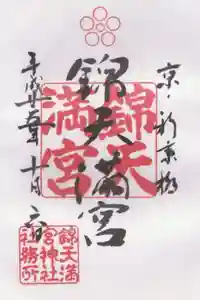 京・新京極
錦天満宮
錦天
満宮
平成 年 十月 日
錦天満
宮神社
社務所